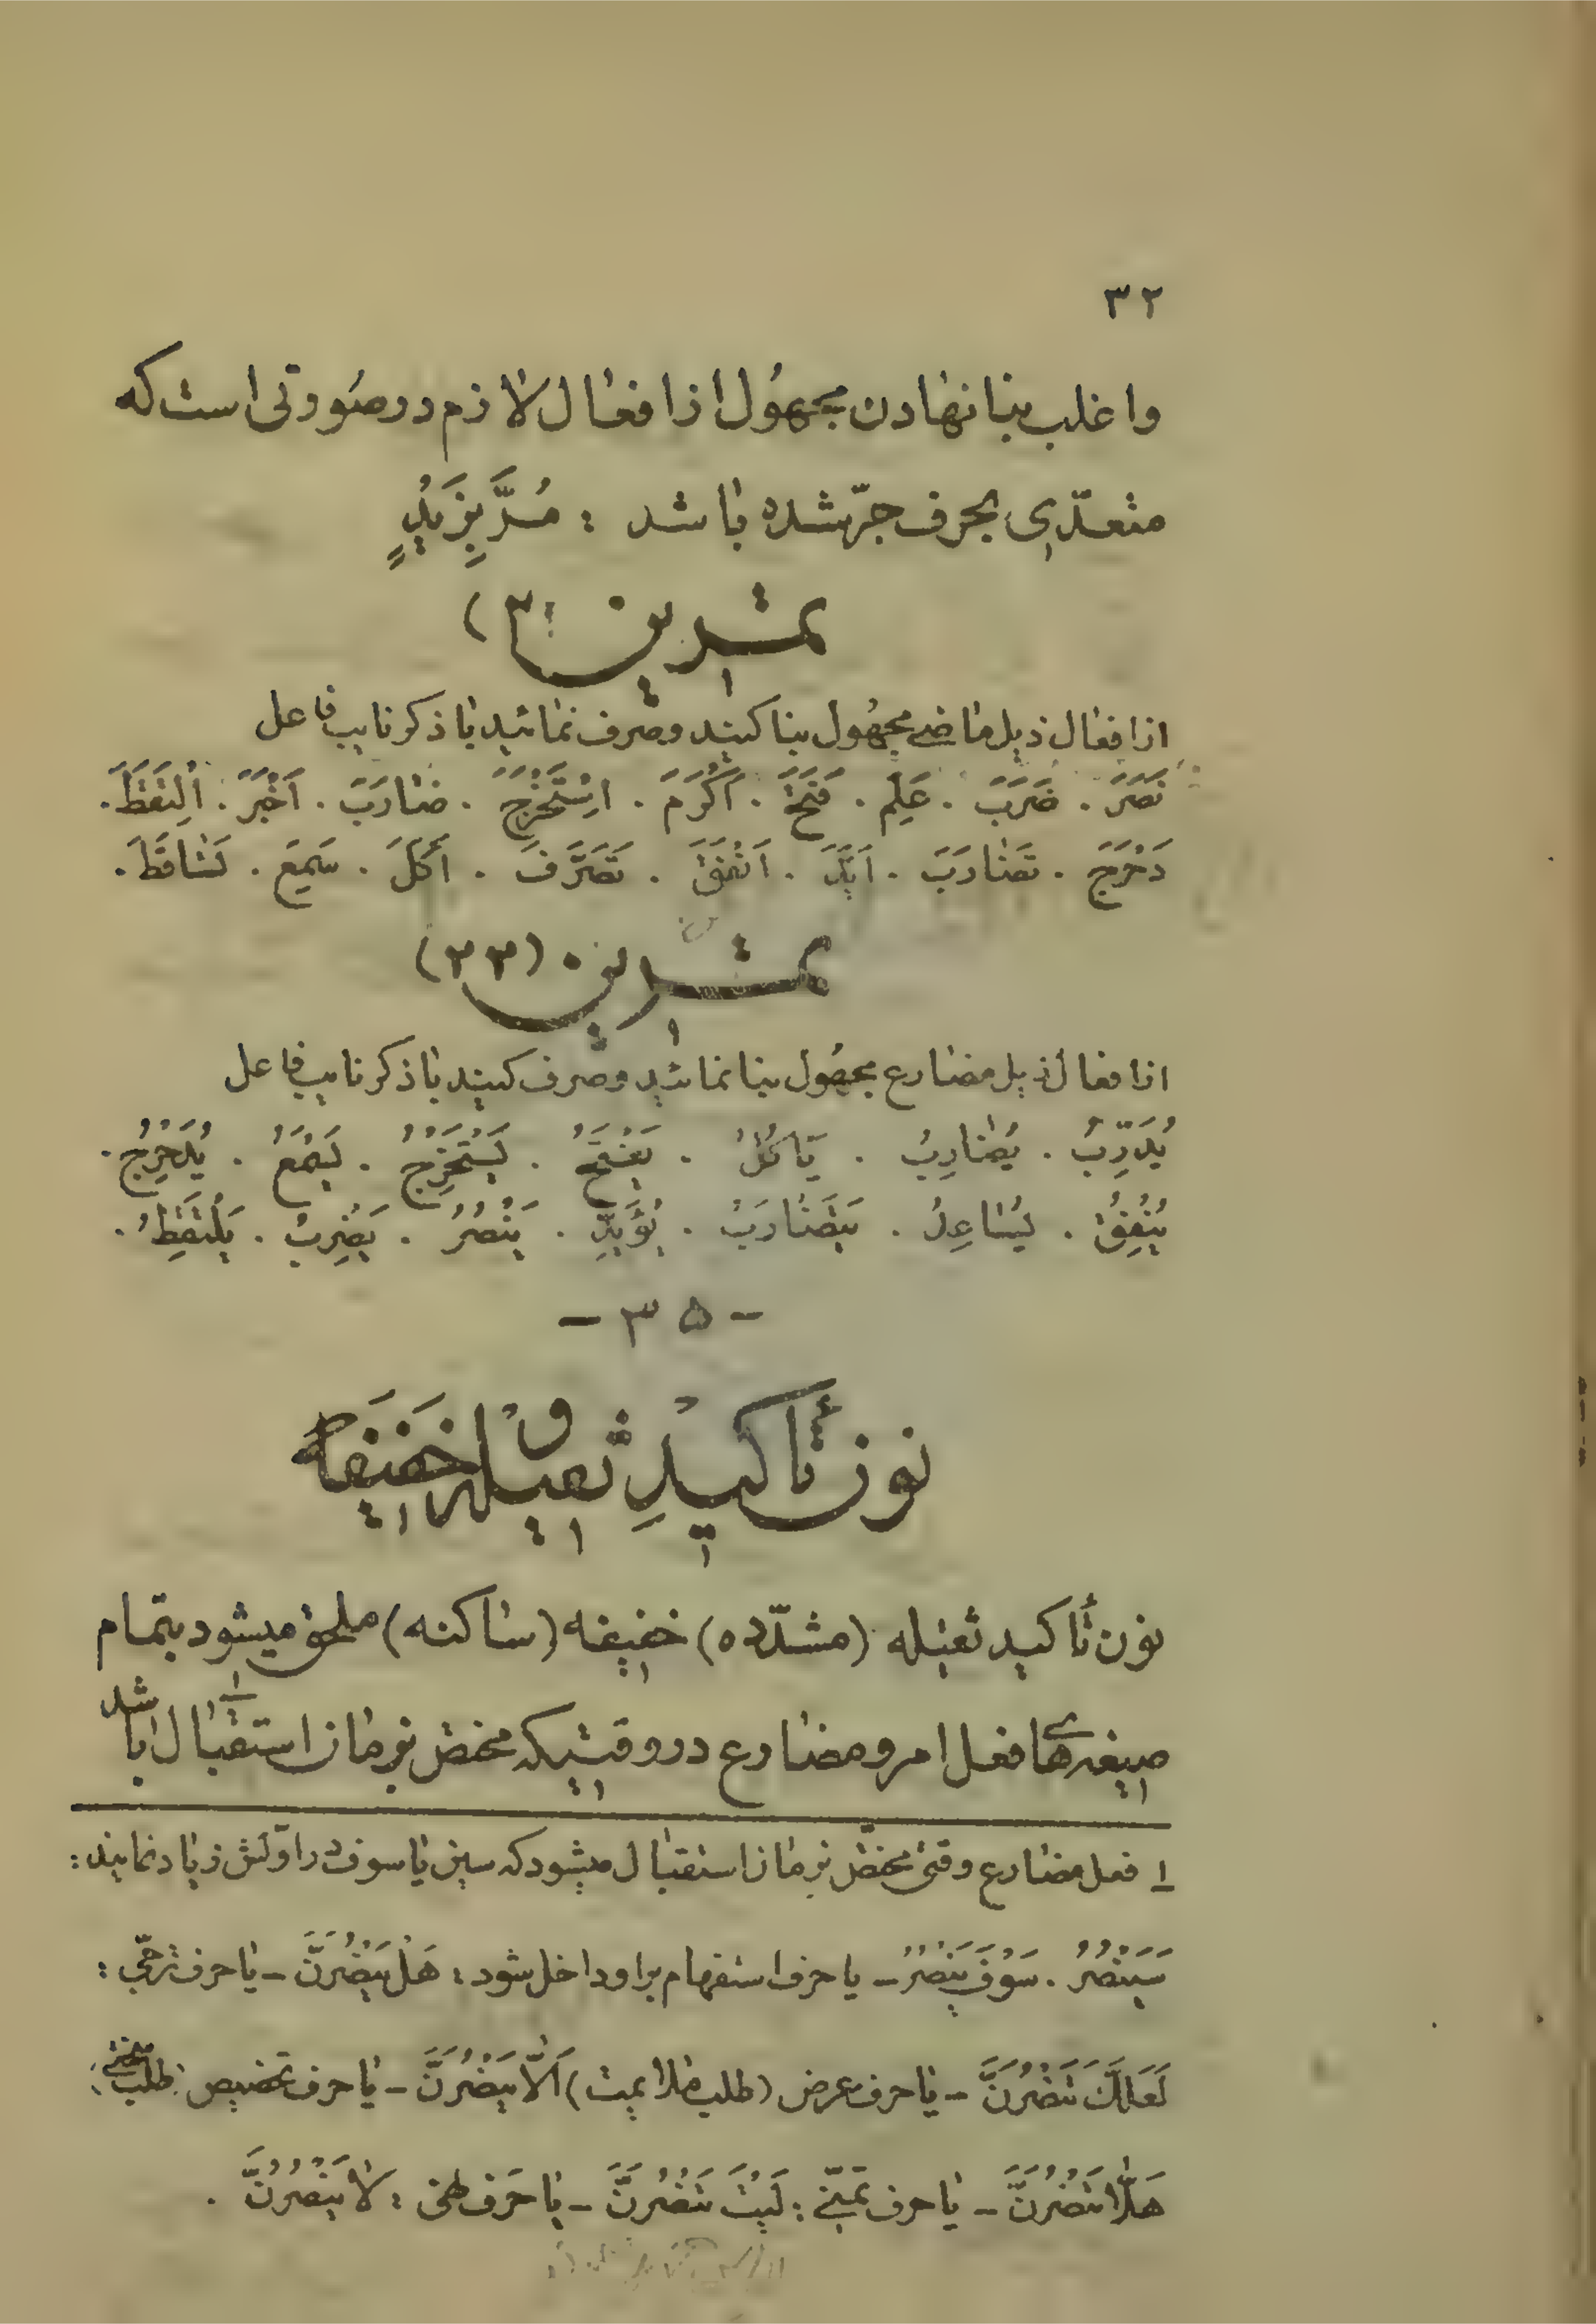 ۳۲
و اغلب بنا نهادن مجهُول از افعال لازم در صُورتی است که
متعدّی بحرف جرّ شده باشد : مُدَّ بِزَیْدٍ
تمرین
از افعال ذیل ماضی مجهُول بنا کنید و صرف نمائید با ذکر نایب فاعل
نَصَرَ . ضَرَبَ . عَلِمَ . فَتَحَ . اَکْرَمَ . اِسْتَخْرَجَ . ضارَبَ . اَخْبَرَ . اِلْتَقَطَ .
دَحْرَجَ . تَضارَبَ . اَیَّدَ . اَنْفَقَ . تَصَرَّفَ . أَکَلَ . سَمِعَ . تَساقَطَ .
تمرین (۳۳)
از افعال ذیل مضارع مجهُول بنا نمائید و صرف کنید با ذکر نایب فاعل
یُدَرِّبُ . یُضارِبُ . یَأکُلُ . یَفْتَحُ . یَسْتَخْرِجُ . یَسْمَعُ . یُدَحْرِجُ .
یُنْفِقُ . یُساعِدُ . یَتَضارَبُ . یُؤَیِّدُ . یَنْصُرُ . یَضْرِبُ . یَلْتَقِطُ .
- ۳۵ -
نون تأکیدِ ثقیله و خفیفه
نون تأکید ثقیله (مشدّده) خفیفه (ساکنه) ملحق میشود بتمام
صیغه‌های فعل امر و مضارع در وقتیکه مختص بزمان استقبال باشد
۱ فعل مضارع وقتی مختصّ بزمان استقبال میشود که سین یا سوف در اوّلش زیاد نمایند :
سَیَنْصُرُ . سَوْفَ یَنْصُرُ - یا حرف استفهام بر او داخل شود : هَلْ یَنْصُرَنَّ - یا حرف ترجّی :
لَعَلَّکَ تَنْصُرَنَّ - یا حرف عرض (طلب ملایمت) اَلّا یَنْصُرَنَّ - یا حرف تحضیض (طلب بسختی) :
هَلّا تَنْصُرَنَّ - یا حرف تمنّی : لَیْتَ تَنْصُرَنَّ - یا حرف نهی : لا یَنْصُرَنَّ .